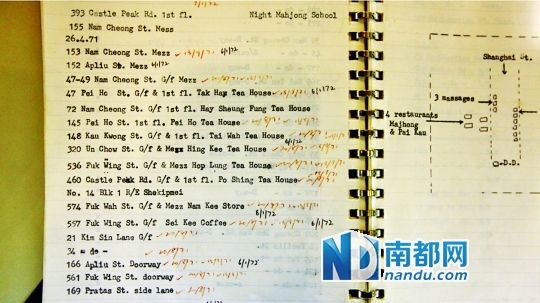 393 Castle Peak Rd. 1st fl. Night Mahjong School
155 Nam Cheong St. Mess
26.4.71
153 Nam Cheong St. Mezz
152 Apliu St. Mezz 6/1/72
47-49 Nam Cheong St. G/f & Mezz
47 Pei Ho St. G/f & 1st fl. Tak Hay Tea House 6/1/72
72 Nam Cheong St. G/f 1st fl. Hay Sheung Fung Tea House
145 Pei Ho St. 1st fl. Pei Ho Tea House
148 Kau Kwong St. G/f & 1st fl. Tai Wah Tea House
320 Un Chow St. G/f & Mezz Hing Kee Tea House 6/1/72
536 Fuk Wing St. G/f & Mezz Hop Lung Tea House
460 Castle Peak Rd. G/f & 1st fl. Po Shing Tea House
No. 14 Blk 1 R/E Shekipmei
574 Fuk Wah St. G/f & Mezz Nam Kee Store 6/1/72
557 Fuk Wing St. G/f Sei Kee Coffee 6/1/72
21 Kim Sin Lane G/f
34 - do -
166 Apliu St. Doorway 6/1/72
561 Fuk Wing St. doorway
169 Pratas St. side lane
6/1/72
Shanghai St.
3 massages
4 restaurants
Majhong
& Pai Kau
D.D.
ND 南都网
nandu.com